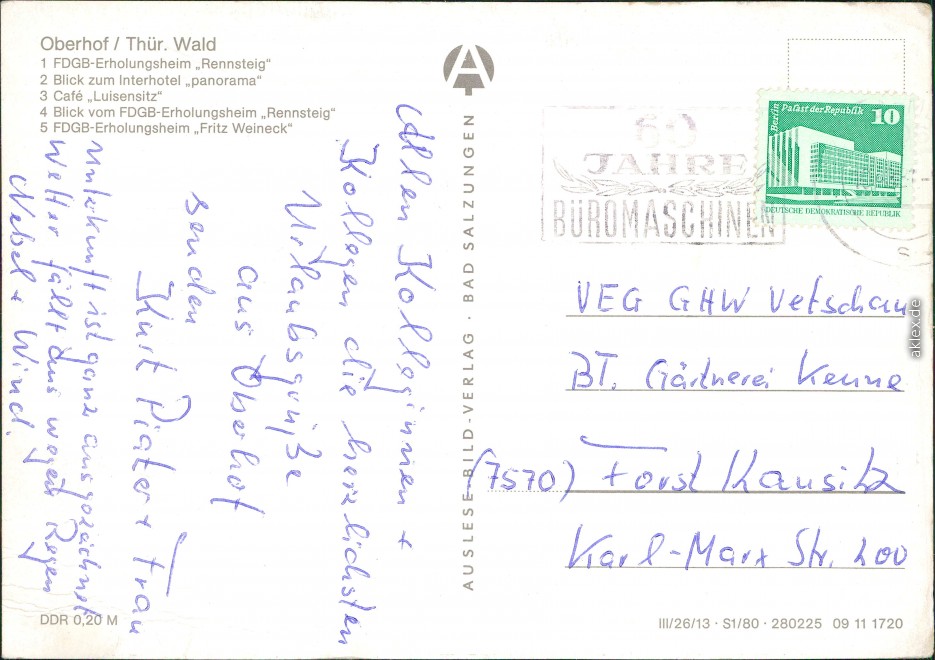 Oberhof / Thür. Wald
1 FDGB-Erholungsheim „Rennsteig“
2 Blick zum Interhotel „panorama“
3 Café „Luisensitz“
4 Blick vom FDGB-Erholungsheim „Rennsteig“
5 FDGB-Erholungsheim „Fritz Weineck“
Allen Kolleginnen +
Kollegen die herzlichsten
Urlaubsgrüße
aus Oberhof
senden
Kurt Piater + Frau
Unterkunft ist ganz ausgezeichnet
Wetter fällt aus wegen Regen
Nebel + Wind.
DDR 0,20 M
A
AUSLESE-BILD-VERLAG · BAD SALZUNGEN
60
JAHRE
BÜROMASCHINEN
Berlin Palast der Republik
10
DEUTSCHE DEMOKRATISCHE REPUBLIK
VEG GHW Vetschau
BT. Gärtnerei Keune
(7570) Forst Lausitz
Karl-Marx Str. 200
III/26/13 · S1/80 · 280225 09 11 1720
aklex.de